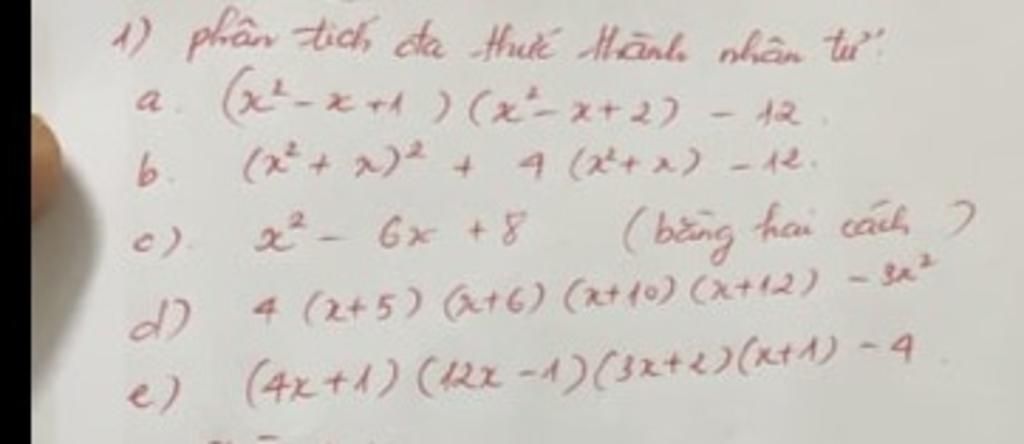 1) phân tích đa thức thành nhân tử:
a. (x² - x + 1) (x² - x + 2) - 12.
b. (x² + x)² + 4 (x² + x) - 12.
c). x² - 6x + 8 (bằng hai cách)
d) 4 (x+5) (x+6) (x+10) (x+12) - 3x²
e) (4x+1) (12x -1) (3x+2) (x+1) - 4